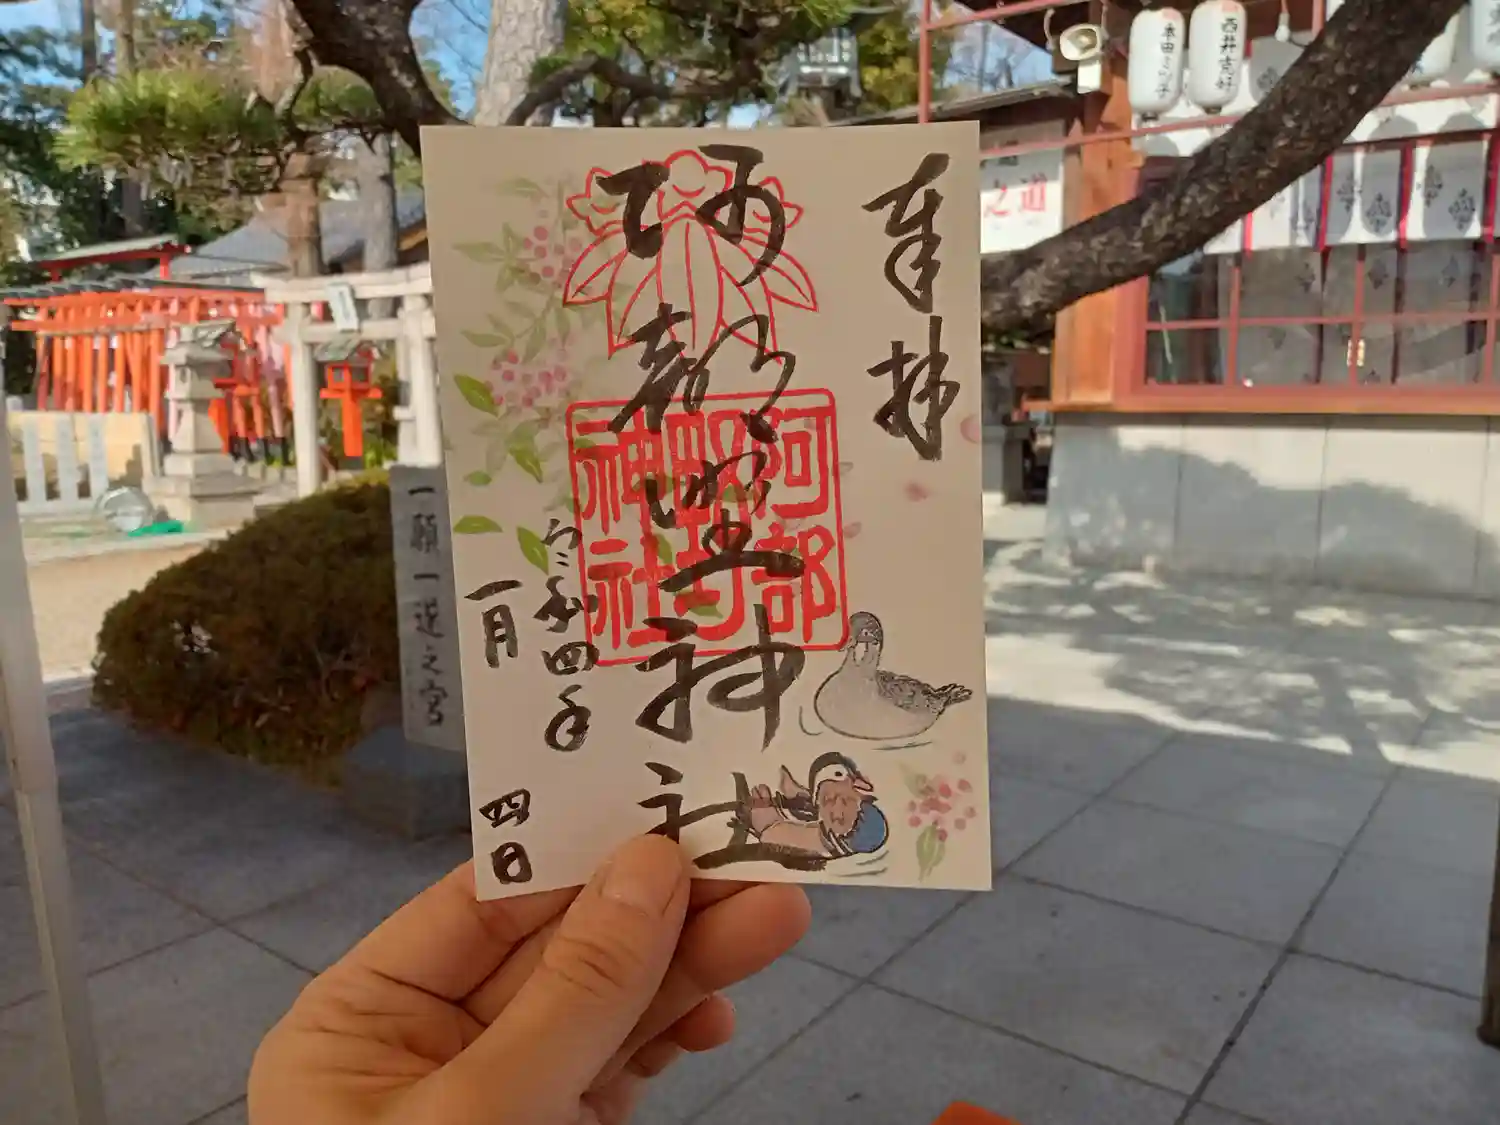 奉拝
阿部野神社
阿部野神社
令和四年
一月
四日
一願一遂之宮
本田ミツ子
西井克好
之道